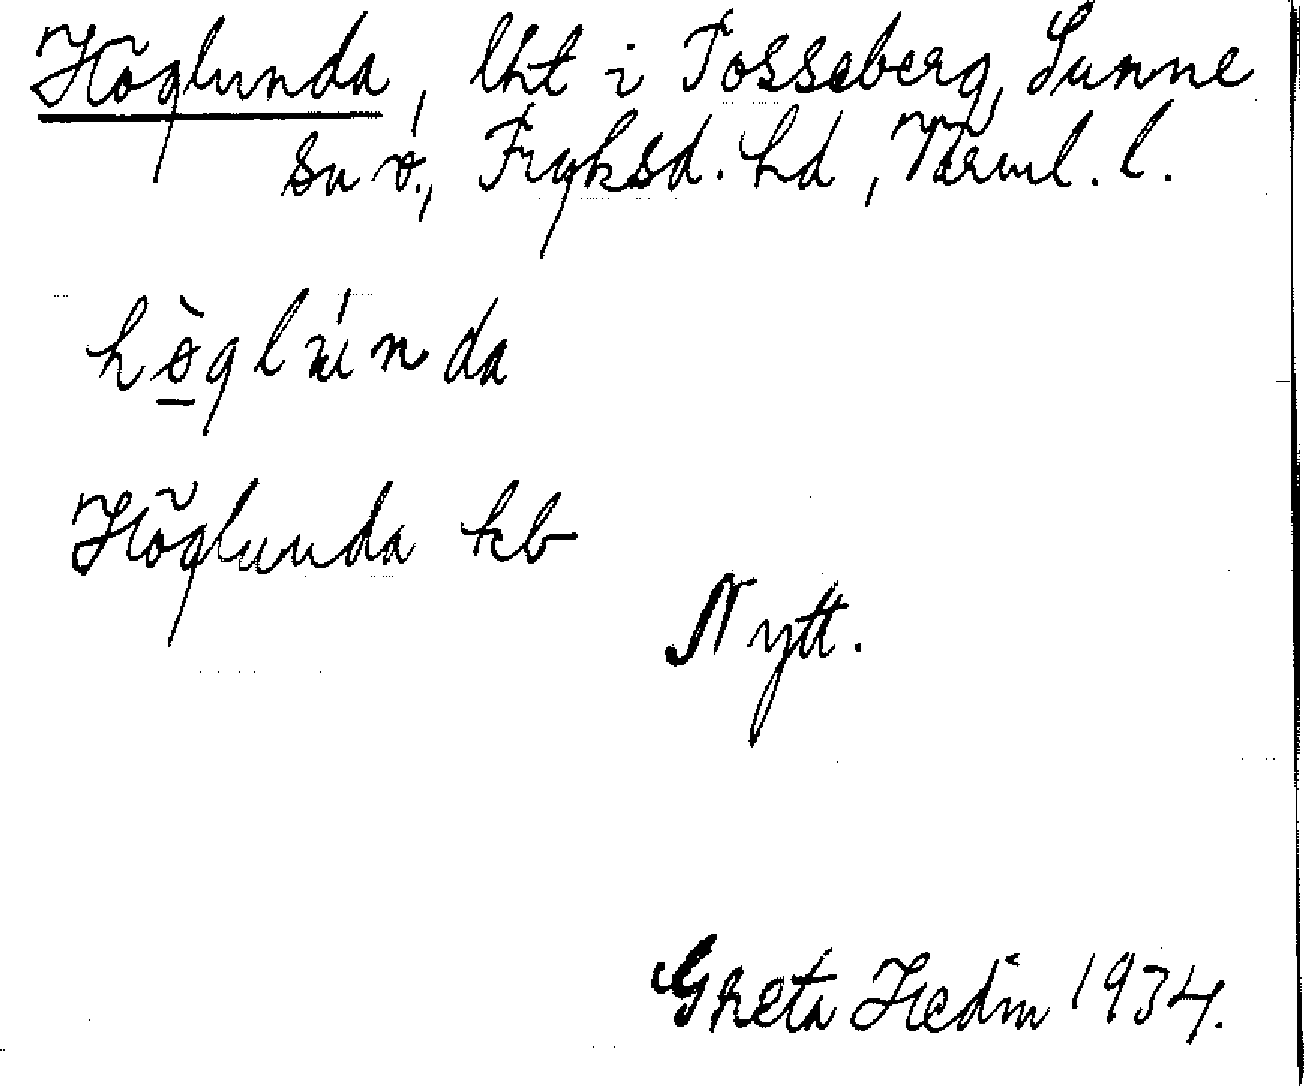 Höglunda, lht i Tosseberg, Sunne
sn ö., Fryksd. hd, Värml. l.
hø̀glúnda
Höglunda kb
Nytt.
Greta Hedin 1934.